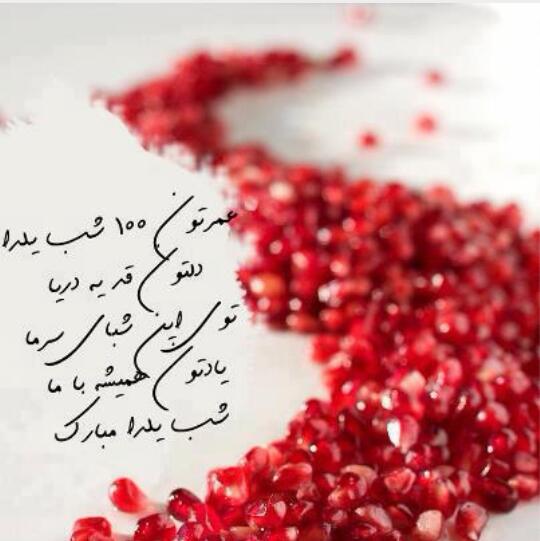 عمرتون ۱۰۰ شب یلدا
دلتون قد یه دریا
توی این شبای سرما
یادتون همیشه با ما
شب یلدا مبارک